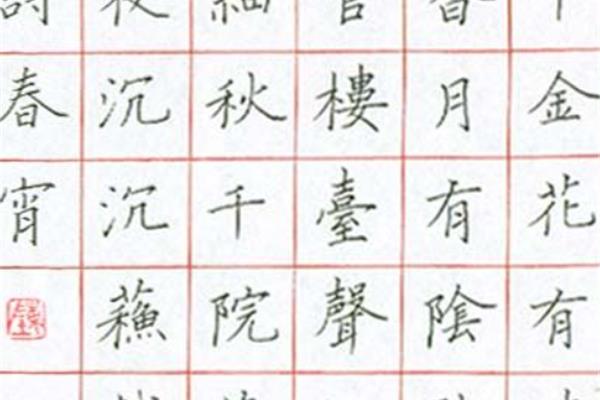 千金花有
香月有陰
管樓臺聲
細秋千院
夜沉沉蘓
詩春宵